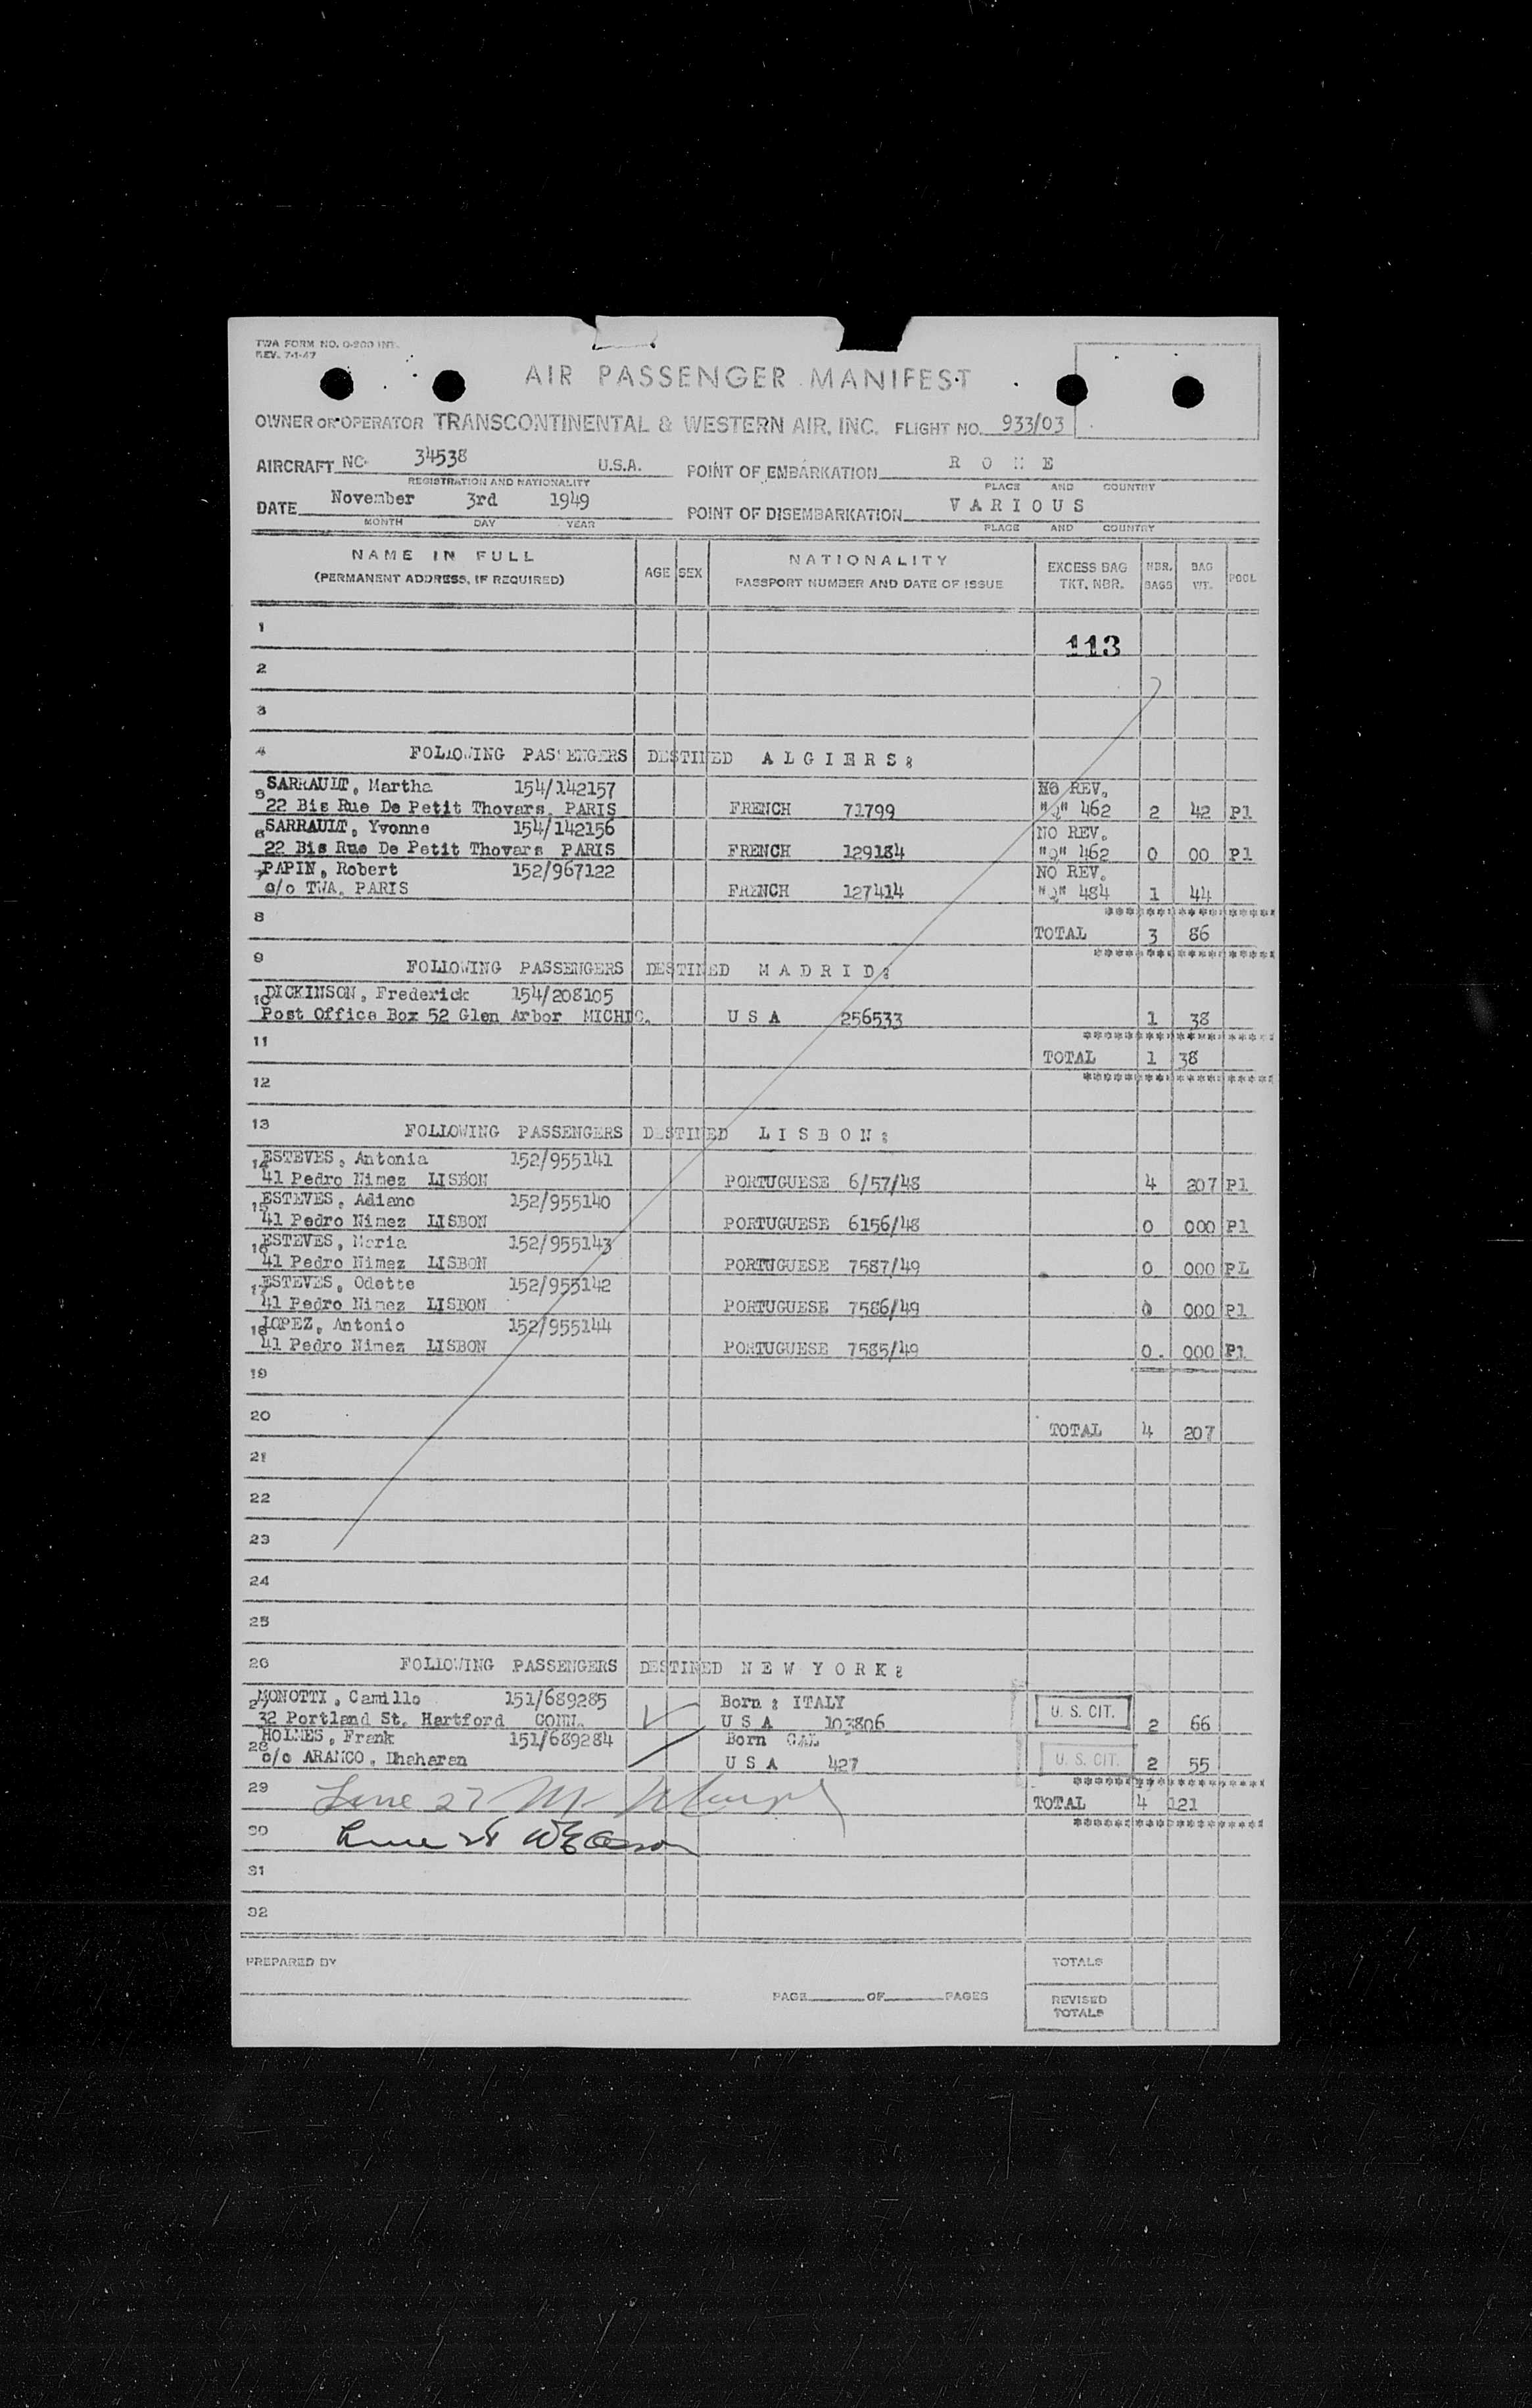 TWA FORM NO. O-200 INT.
REV. 7-1-47
AIR PASSENGER MANIFEST
OWNER OR OPERATOR TRANSCONTINENTAL & WESTERN AIR, INC. FLIGHT NO. 933/03
AIRCRAFT NC- 34538 U.S.A. POINT OF EMBARKATION R O M E
REGISTRATION AND NATIONALITY PLACE AND COUNTRY
DATE November 3rd 1949 POINT OF DISEMBARKATION V A R I O U S
MONTH DAY YEAR PLACE AND COUNTRY
NAME IN FULL AGE SEX NATIONALITY EXCESS BAG NBR. BAG POOL
(PERMANENT ADDRESS, IF REQUIRED) PASSPORT NUMBER AND DATE OF ISSUE TKT. NBR. BAGS WT.
1 113
2
3
4 FOLLOWING PASSENGERS DESTINED A L G I E R S:
5 SARRAULT, Martha 154/142157 NO REV.
22 Bis Rue De Petit Thovars, PARIS FRENCH 71799 "Q" 462 2 42 Pl
6 SARRAULT, Yvonne 154/142156 NO REV.
22 Bis Rue De Petit Thovars PARIS FRENCH 129184 "Q" 462 0 00 Pl
7 PAPIN, Robert 152/967122 NO REV.
c/o TWA, PARIS FRENCH 127414 "Q" 484 1 44
8 ******************
TOTAL 3 86
9 *******************
FOLLOWING PASSENGERS DESTINED M A D R I D:
10 DICKINSON, Frederick 154/208105
Post Office Box 52 Glen Arbor MICHIG. U S A 256533 1 38
11 ********************
TOTAL 1 38
12 ********************
13 FOLLOWING PASSENGERS DESTINED L I S B O N:
14 ESTEVES, Antonia 152/955141
41 Pedro Nimez LISBON PORTUGUESE 6/57/48 4 207 Pl
15 ESTEVES, Adiano 152/955140
41 Pedro Nimez LISBON PORTUGUESE 6156/48 0 000 Pl
16 ESTEVES, Maria 152/955143
41 Pedro Nimez LISBON PORTUGUESE 7587/49 0 000 PL
17 ESTEVES, Odette 152/955142
41 Pedro Nimez LISBON PORTUGUESE 7586/49 0 000 Pl
18 LOPEZ, Antonio 152/955144
41 Pedro Nimez LISBON PORTUGUESE 7585/49 0. 000 Pl
19
20 TOTAL 4 207
21
22
23
24
25
26 FOLLOWING PASSENGERS DESTINED N E W Y O R K:
27 MONOTTI, Camillo 151/689285 Born : ITALY U. S. CIT.
32 Portland St. Hartford CONN. U S A 103806 2 66
28 HOLMES, Frank 151/689284 Born CAL
c/o ARAMCO, Dhaharan U S A 427 U. S. CIT. 2 55
29 Line 27 ********************
TOTAL 4 121
30 Line 28 ********************
31
32
PREPARED BY TOTALS
PAGE OF PAGES REVISED
TOTALS